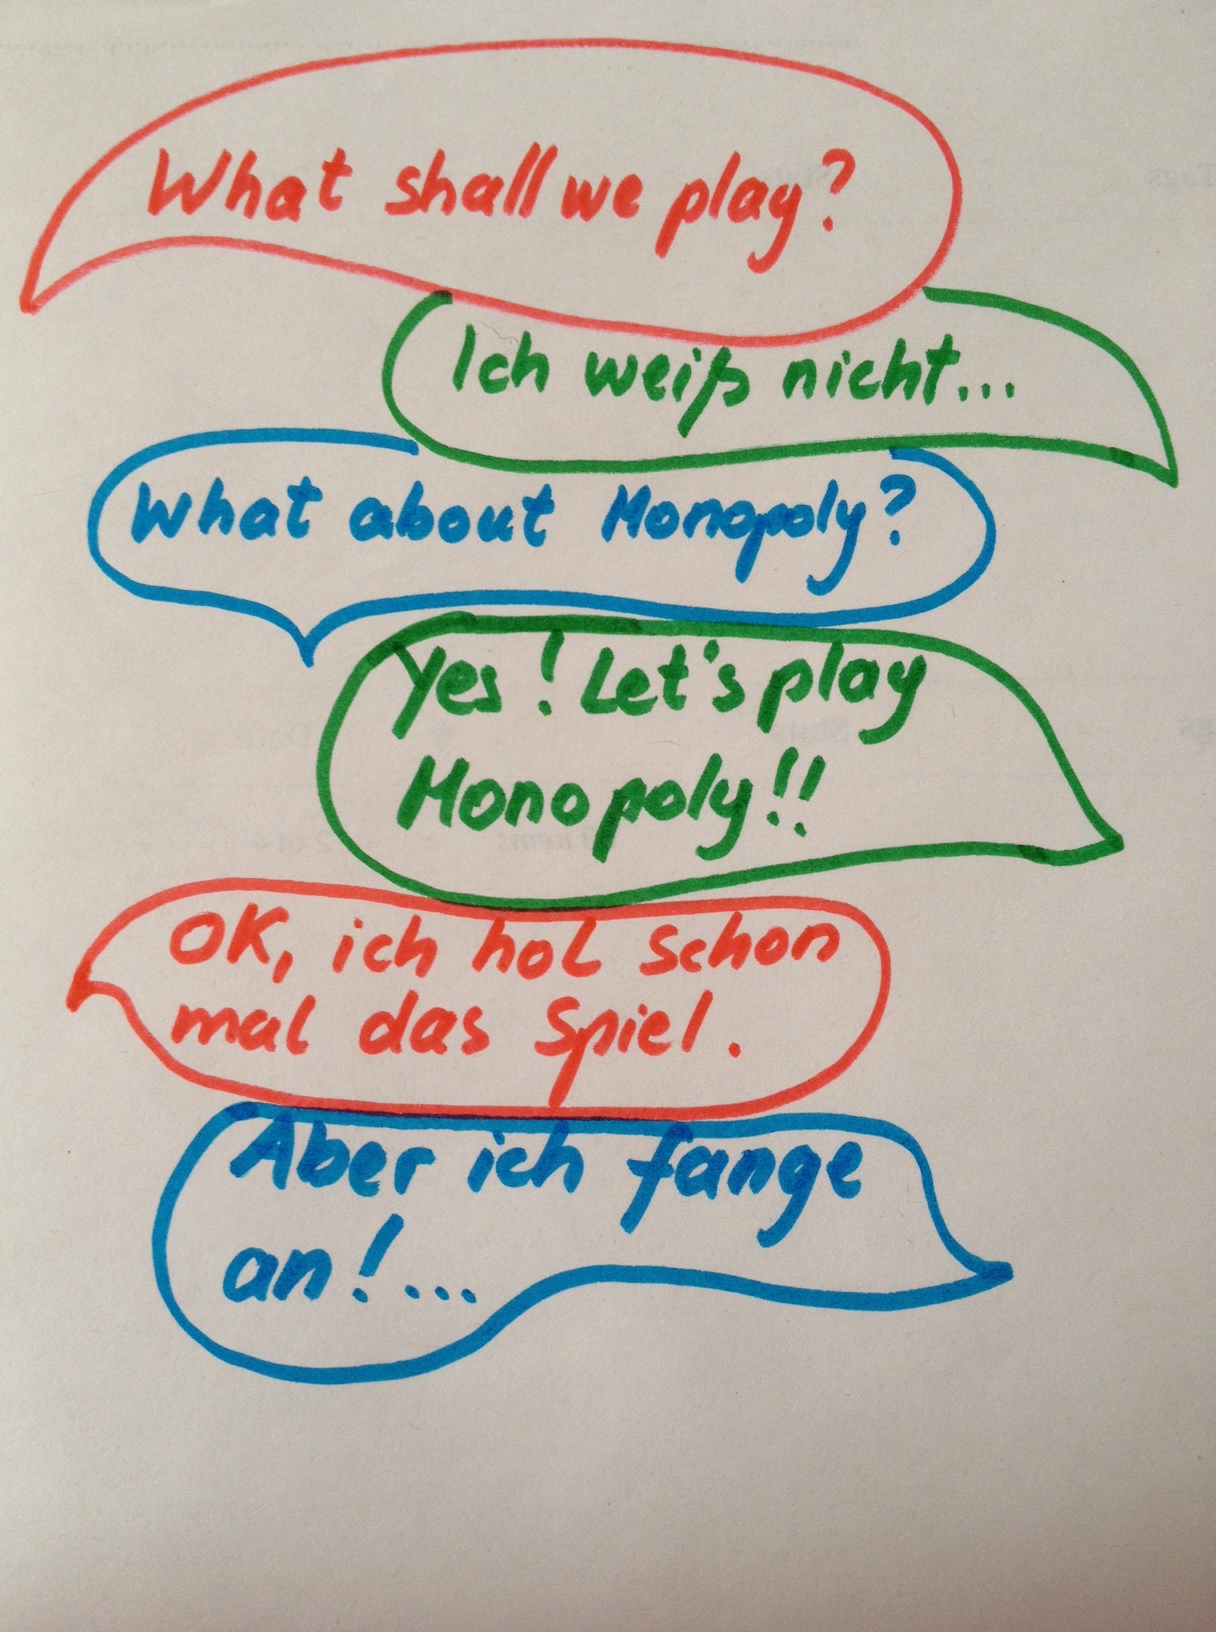 What shall we play?
Ich weiß nicht...
What about Monopoly?
Yes! Let's play
Monopoly!!
OK, ich hol schon
mal das Spiel.
Aber ich fange
an!...